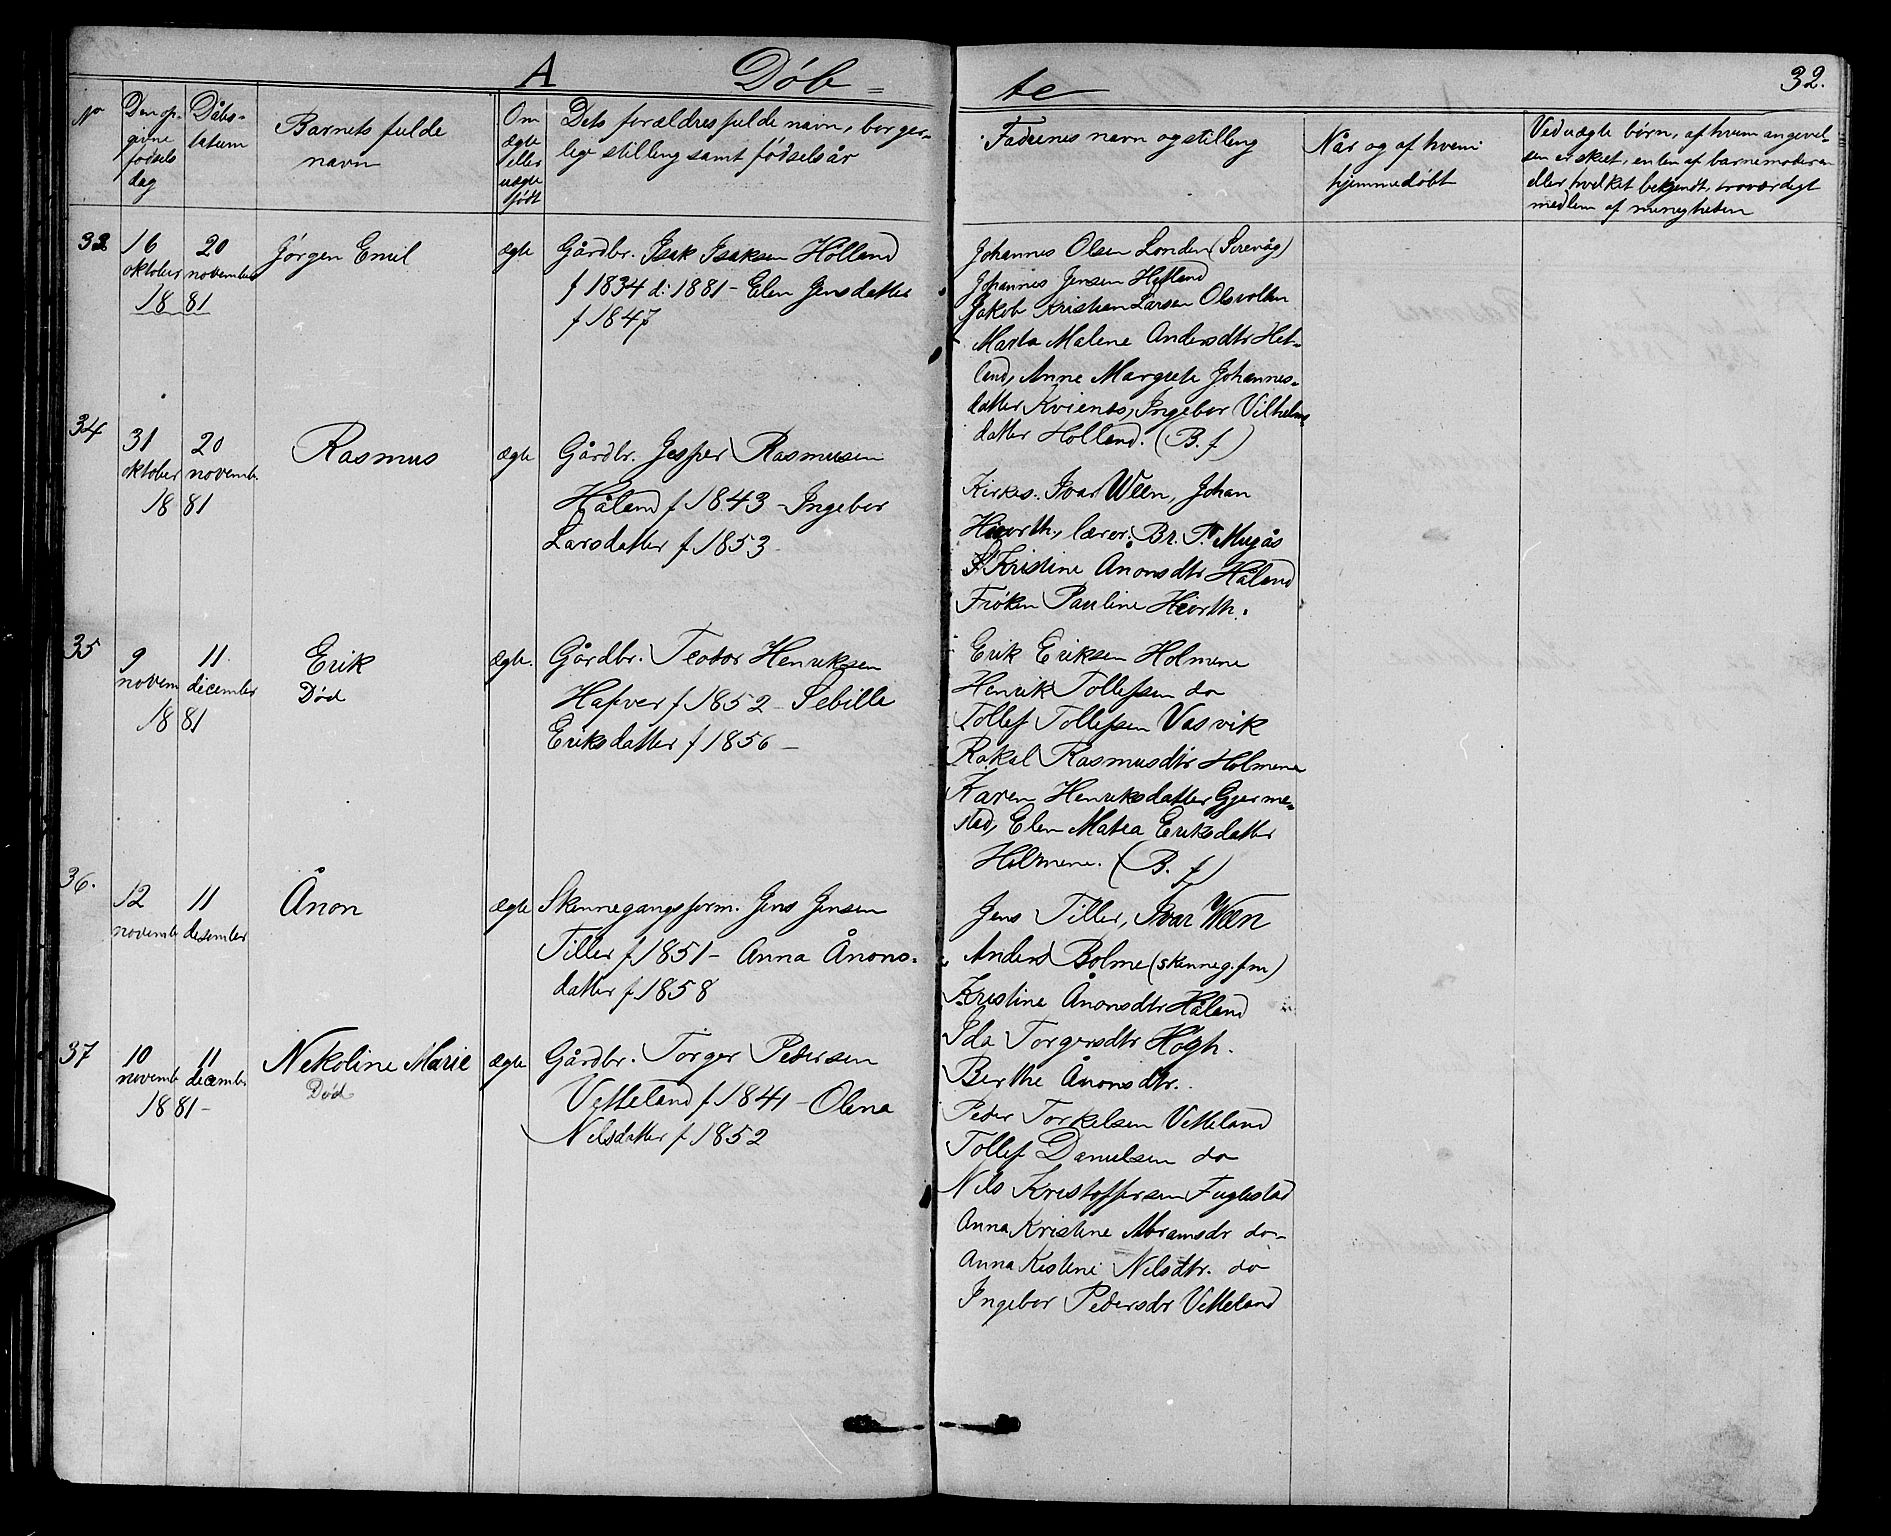 A Døb- te 32.
No
Den op-
givne
fødsels
dag
Dåbs-
datum
Barnets fulde
navn
Om
ægte
eller
uægte
født
Dets forældres fulde navn, borger-
lige stilling samt fødselsår
Faddernes navn og stilling
Når og af hvem
hjemmedøbt
Ved uægte børn, af hvem angivel-
sen er skeet, enten af barnemoderen
eller hvilket bekjendt, troværdigt
medlem af menigheden
33 16
oktober
20
november
1881
Jørgen Emil
ægte
Gårdbr. Isak Isaksen Holland
f 1834 d: 1881 - Elen Jensdatter
f 1847
Johannes Olsen Londen (Sirevåg)
Johannes Jensen Hetland
Jakob Kristian Larsen
Marta Malene Andersdtr Het-
land, Anne Margrete Johannes-
datter Ingebor Vilhelms
datter Holland. (B. f)
34
31
oktober
20
novemb.
1881
Rasmus
ægte
Gårdbr. Jesper Rasmusen
Håland f 1843 - Ingebor
Larsdatter f 1853
Kirkes. Ivar Ween, Johan
Hiorth, lærer. Br. T.
Kristine Ånonsdtr Håland
Frøken Pauline Hiorth.
35
9
novem
11
december
1881
Erik
Død
ægte.
Gårdbr. Teodor Henriksen
Hafver f 1852 - Sebille
Eriksdatter f 1856 -
Erik Eriksen Holmene
Henrik Tollefsen do
Tollef Tollefsen Vasvik
Rakel Rasmusdtr Holmene
Karen Henriksdatter Gjerme-
stad, Elen Matea Eriksdatter
Holmene. (B. f)
36.
12
novemb
11
desember
Ånon
ægte
Skinnegangsform. Jens Jensen
Tiller f 1851 - Anna Ånons-
datter f 1858
Jens Tiller, Ivar Ween
Anders Bolme (skinneg.fm)
Kristine Ånonsdtr Håland
Ida Torgersdtr Høgh.
Berthe Ånonsdtr.
37
10
novemb
11
decembr
1881 -
Nekoline Marie
Død
ægte
Gårdbr. Torger Pedersen
Vetteland f 1841 - Olena
Nilsdatter f 1852
Peder Torkelsen Vetteland
Tollef Danielsen do
Nils Kristoffersen Fuglestad
Anna Kristine Abramsdr do-
Anna Kistine Nilsdtr. do
Ingebor Pedersdr Vetteland